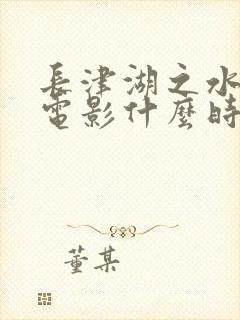 長津湖之水
電影什麼時
董某